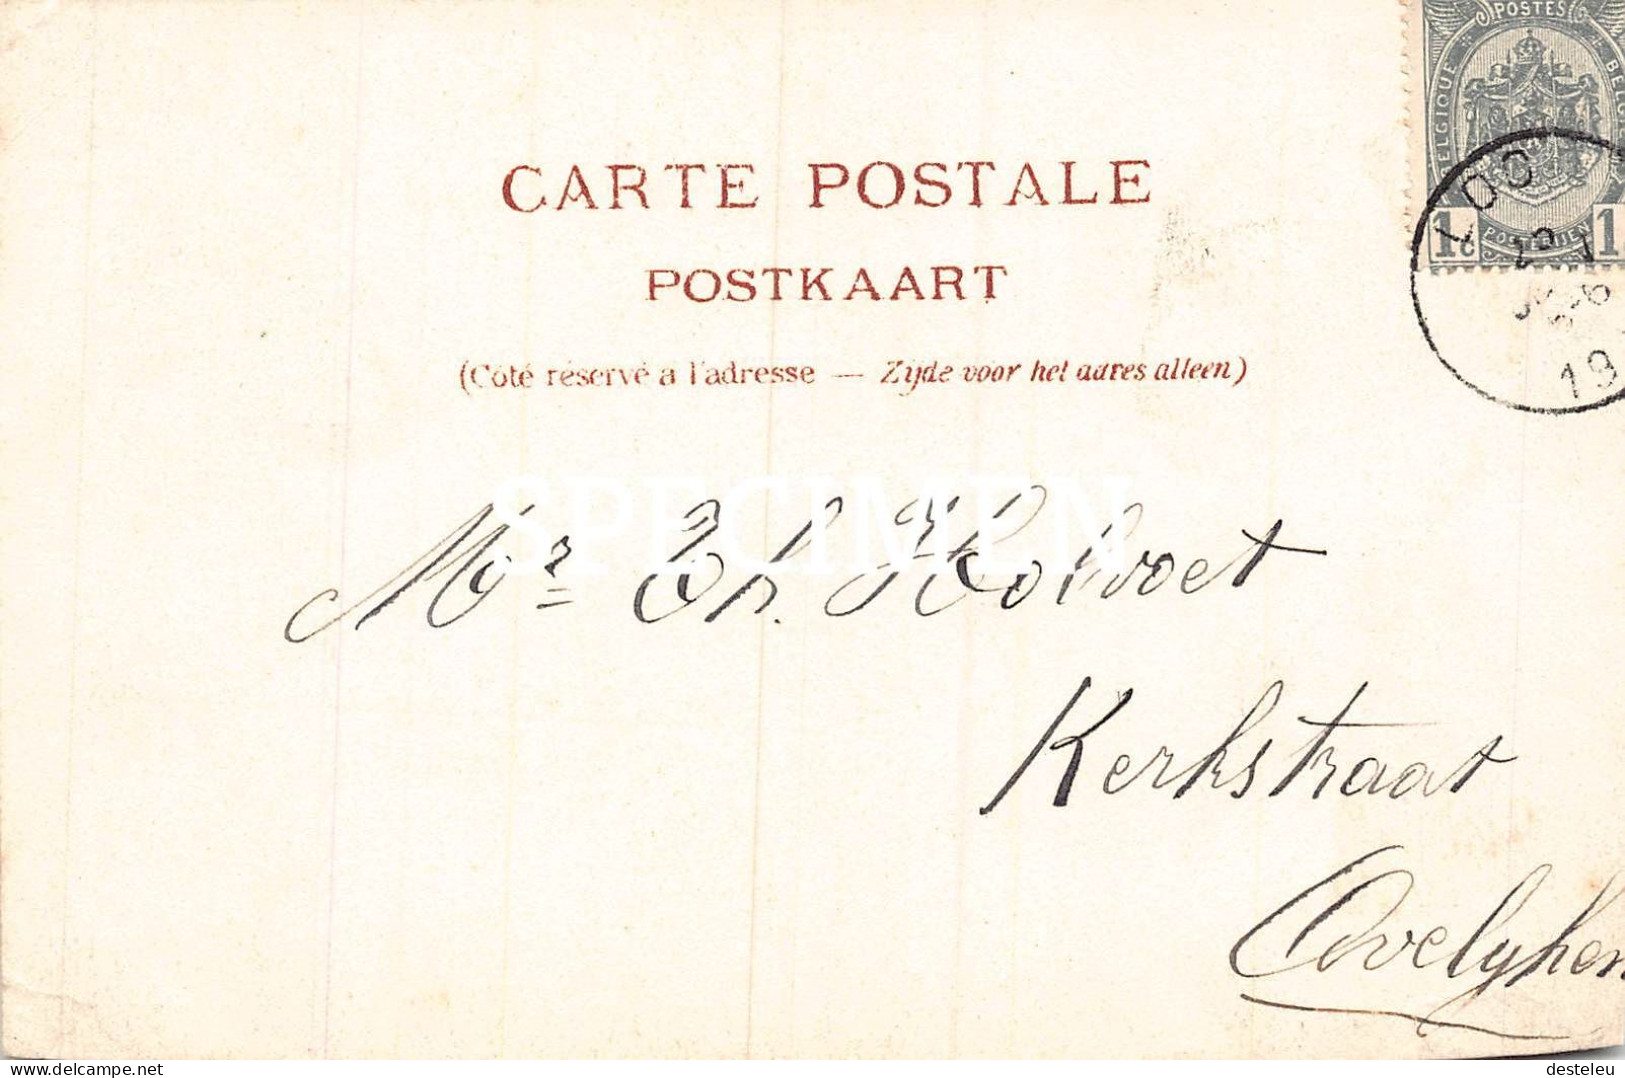 POSTES
BELGIQUE
1c POSTERIJEN 1
LOO
19
CARTE POSTALE
POSTKAART
(Côté réservé a l'adresse — Zijde voor het adres alleen)
SPECIMEN
Mr Th. Holvoet
Kerkstraat
Avelghem
delcampe.net
desteleu